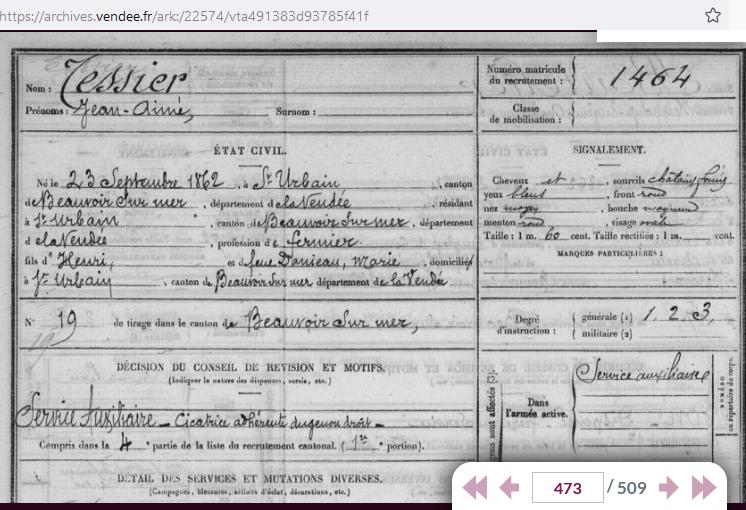 https://archives.vendee.fr/ark:/22574/vta491383d93785f41f
Nom : Tessier
Prénoms : Jean-Aimé, Surnom :
Numéro matricule du recrutement : 1464
Classe de mobilisation :
ÉTAT CIVIL.
Né le 23 Septembre 1862, à St Urbain, canton
de Beauvoir Sur mer, département de la Vendée, résidant
à St Urbain, canton de Beauvoir Sur mer, département
d e la Vendée, profession de fermier
fils d' Henri, et de feue Danieau, Marie domiciliés
à St Urbain, canton de Beauvoir Sur mer département de la Vendée
SIGNALEMENT.
Cheveux et, sourcils châtains
yeux bleus, front rond
nez moyen, bouche moyenne
menton rond, visage ovale
Taille : 1 m. 60 cent. Taille rectifiée : 1 m. cent.
MARQUES PARTICULIÈRES :
N° 19 de tirage dans le canton de Beauvoir Sur mer,
19
Degré d'instruction : générale (1) 1.2.3,
militaire (2)
DÉCISION DU CONSEIL DE REVISION ET MOTIFS.
(Indiquer la nature des dispenses, sursis, etc.)
Service Auxiliaire - Cicatrice adhérente du genou droit -
Compris dans la 4e partie de la liste du recrutement cantonal. (1re portion).
Dans l'armée active. Service auxiliaire
NUMÉRO au répertoire du corps.
DÉTAIL DES SERVICES ET MUTATIONS DIVERSES.
(Campagnes, blessures, actions d'éclat, décorations, etc.)
473 / 509